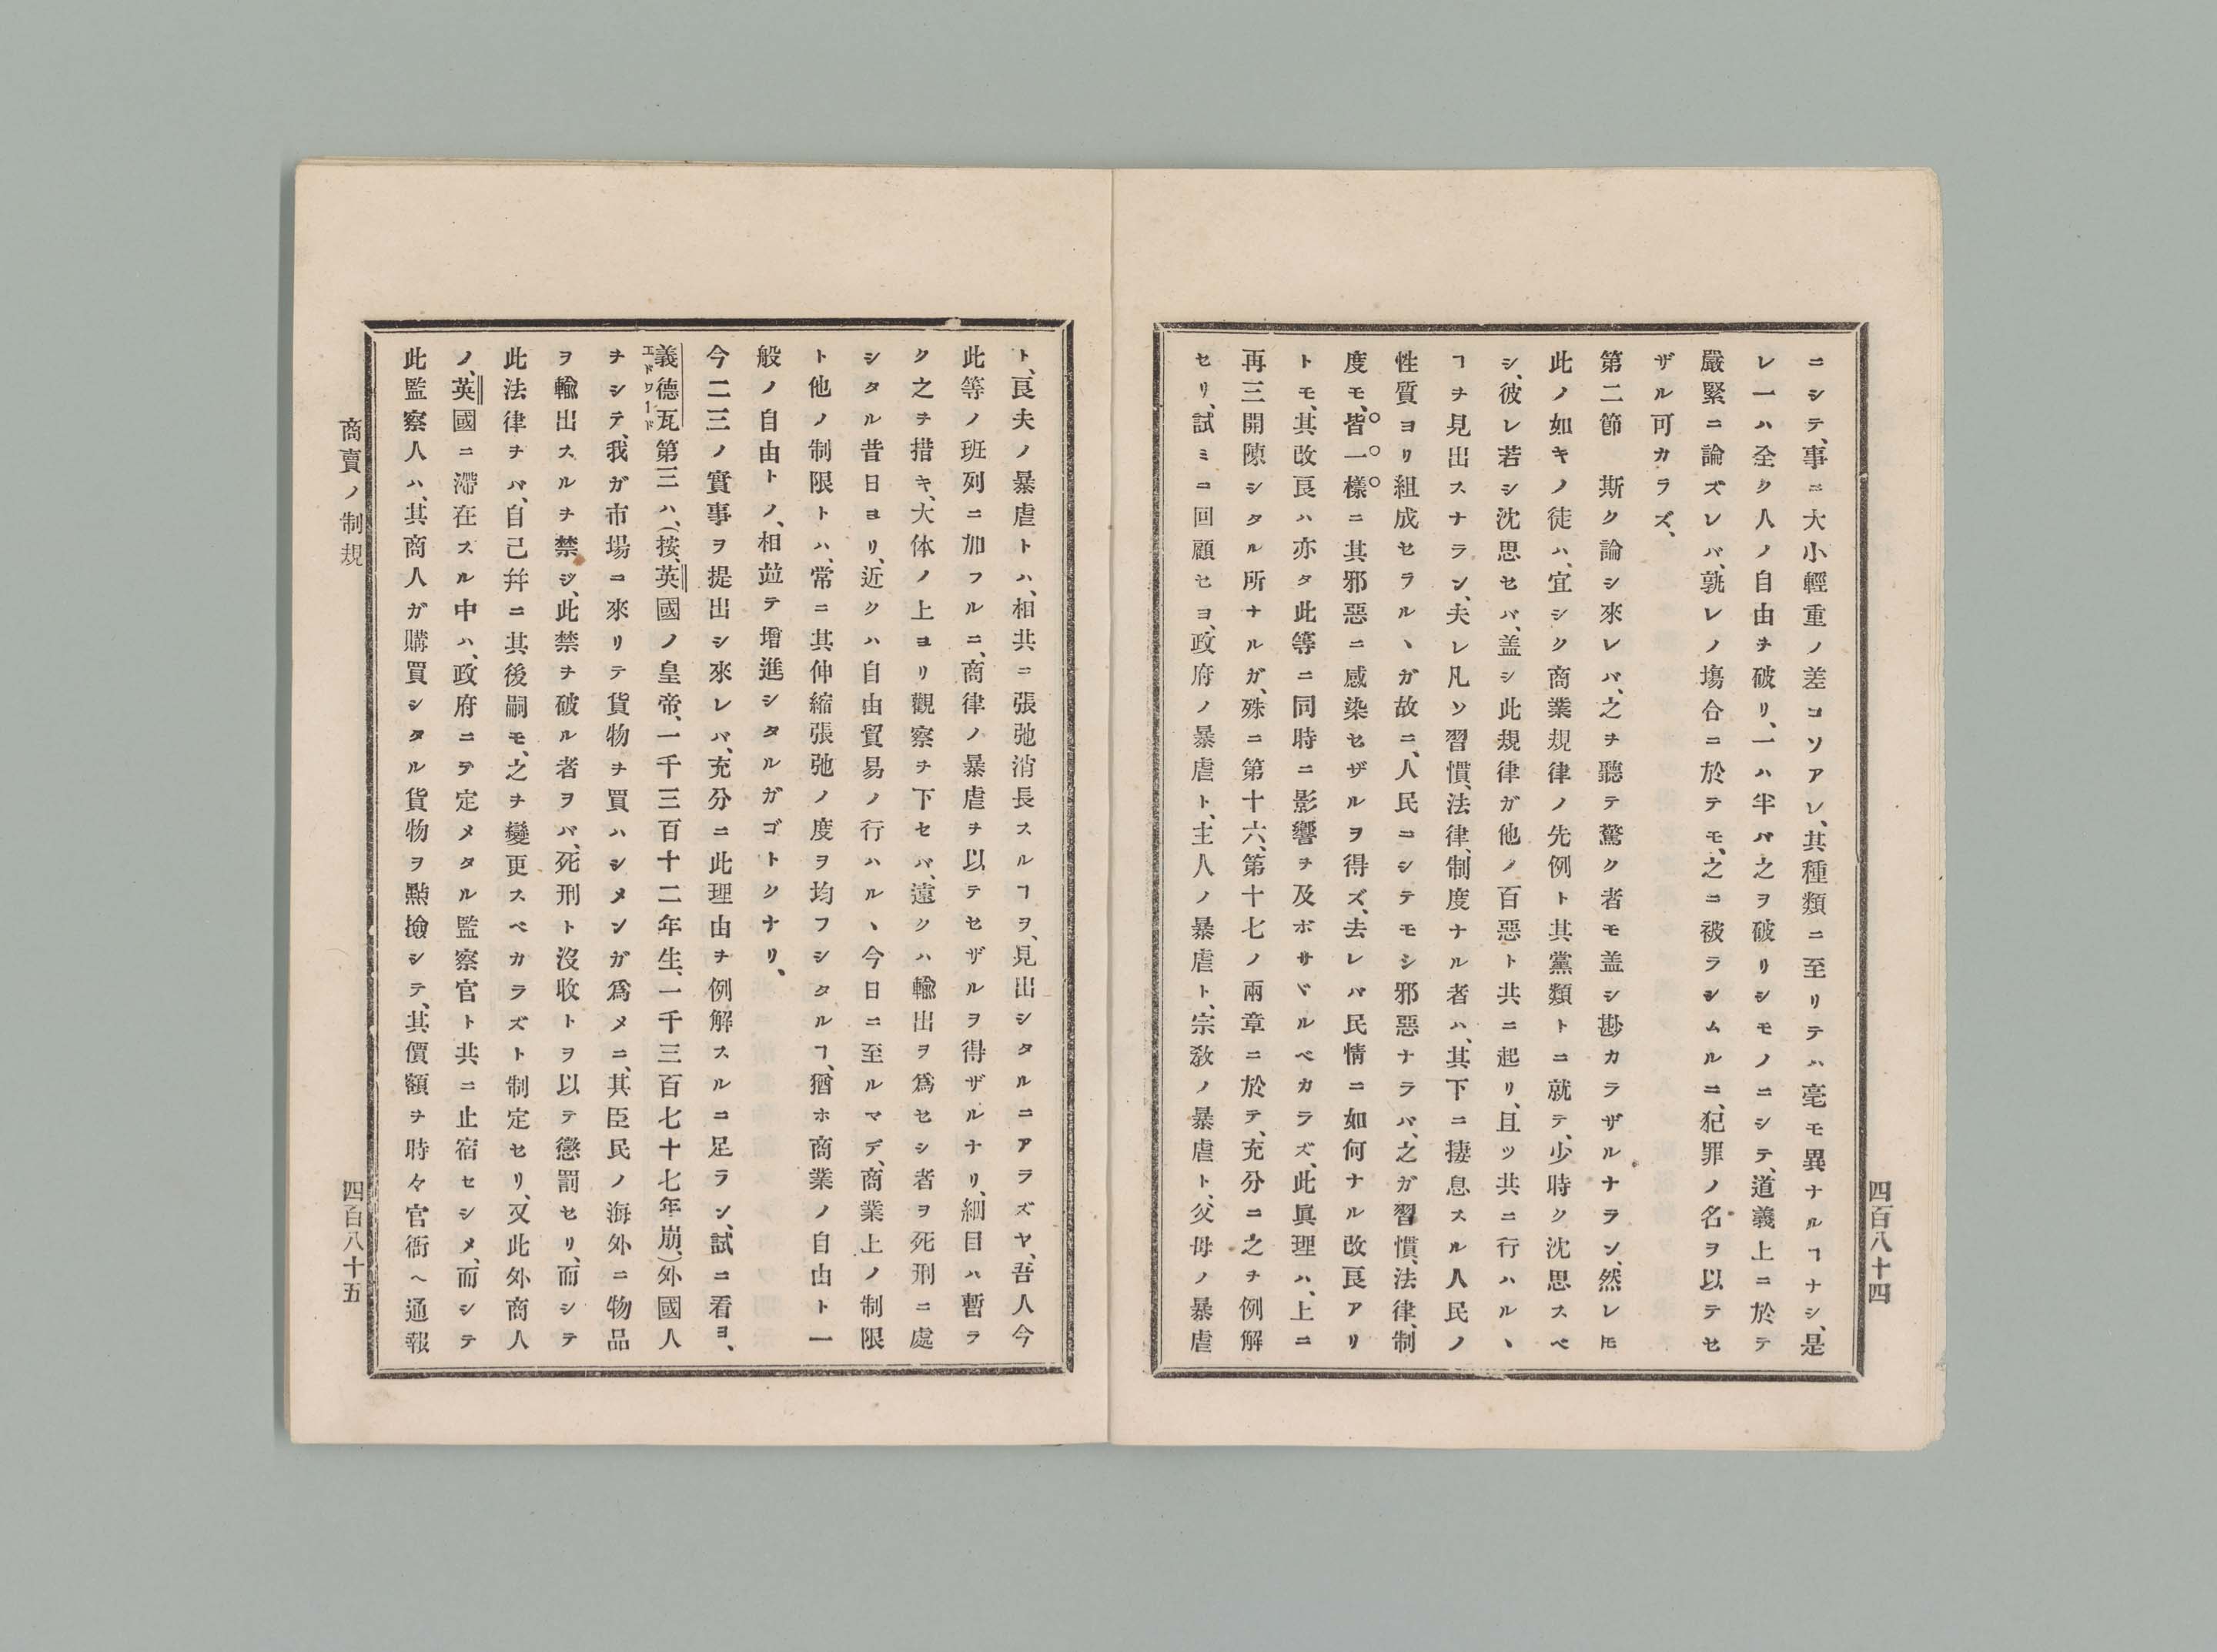 ニシテ、事ニ大小輕重ノ差コソアレ、其種類ニ至リテハ毫モ異ナルヿナシ、是
レ一ハ全ク人ノ自由ヲ破リ、一ハ半バ之ヲ破リシモノニシテ、道義上ニ於テ
嚴緊ニ論ズレバ、孰レノ塲合ニ於テモ、之ニ被ラシムルニ、犯罪ノ名ヲ以テセ
ザル可カラズ、
第二節　斯ク論シ來レバ、之ヲ聽テ驚ク者モ盖シ尠カラザルナラン、然レ𪜈
此ノ如キノ徒ハ、宜シク商業規律ノ先例ト其黨類トニ就テ、少時ク沈思スベ
シ、彼レ若シ沈思セバ、盖シ此規律ガ他ノ百惡ト共ニ起リ、且ツ共ニ行ハルヽ
ヿヲ見出スナラン、夫レ凡ソ習慣、法律、制度ナル者ハ、其下ニ捿息スル人民ノ
性質ヨリ組成セラルヽガ故ニ、人民ニシテモシ邪惡ナラバ、之ガ習慣、法律、制
度モ、皆一樣ニ其邪惡ニ感染セザルヲ得ズ、去レバ民情ニ如何ナル改良アリ
トモ、其改良ハ亦タ此等ニ同時ニ影響ヲ及ボサヾルベカラズ、此眞理ハ、上ニ
再三開陳シタル所ナルガ、殊ニ第十六、第十七ノ兩章ニ於テ、充分ニ之ヲ例解
セリ、試ミニ回顧セヨ、政府ノ暴虐ト、主人ノ暴虐ト、宗敎ノ暴虐ト、父母ノ暴虐
四百八十四
ト、良夫ノ暴虐トハ、相共ニ張弛消長スルヿヲ、見出シタルニアラズヤ、吾人今
此等ノ班列ニ加フルニ、商律ノ暴虐ヲ以テセザルヲ得ザルナリ、細目ハ暫ラ
ク之ヲ措キ、大体ノ上ヨリ觀察ヲ下セバ、遠クハ輸出ヲ爲セシ者ヲ死刑ニ處
シタル昔日ヨリ、近クハ自由貿易ノ行ハルヽ今日ニ至ルマデ、商業上ノ制限
ト他ノ制限トハ、常ニ其伸縮張弛ノ度ヲ均フシタルヿ、猶ホ商業ノ自由ト一
般ノ自由トノ、相並テ增進シタルガゴトクナリ、
今二三ノ實事ヲ提出シ來レバ、充分ニ此理由ヲ例解スルニ足ラン、試ニ看ヨ、
義德瓦第三ハ、（按、英國ノ皇帝、一千三百十二年生、一千三百七十七年崩、）外國人
エドワード
ヲシテ、我ガ市塲ニ來リテ貨物ヲ買ハシメンガ爲メニ、其臣民ノ海外ニ物品
ヲ輸出スルヲ禁ジ、此禁ヲ破ル者ヲバ、死刑ト沒收トヲ以テ懲罰セリ、而シテ
此法律ヲバ、自己幷ニ其後嗣モ、之ヲ變更スベカラズト制定セリ、又此外商人
ノ、英國ニ滯在スル中ハ、政府ニテ定メタル監察官ト共ニ止宿セシメ、而シテ
此監察人ハ、其商人ガ購買シタル貨物ヲ㸃撿シテ、其價額ヲ時々官衙ヘ通報
商賣ノ制規
四百八十五